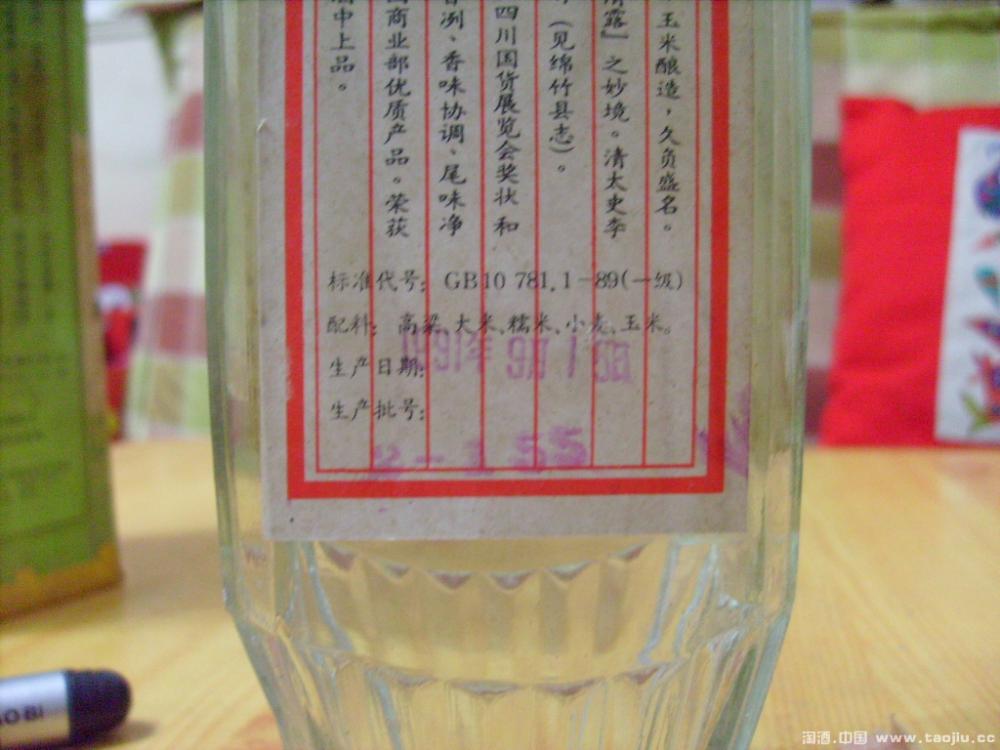 玉米酿造，久负盛名。
清露』之妙境。清太史李
（见绵竹县志）。
四川国货展览会奖状和
冽、香味协调、尾味净
商业部优质产品。荣获
酒中上品。
标准代号：GB10 781.1-89(一级)
配料：高粱、大米、糯米、小麦、玉米。
生产日期：
1991年 9月 1 5日
生产批号：
2-155
OBI
淘酒.中国 www.taojiu.cc